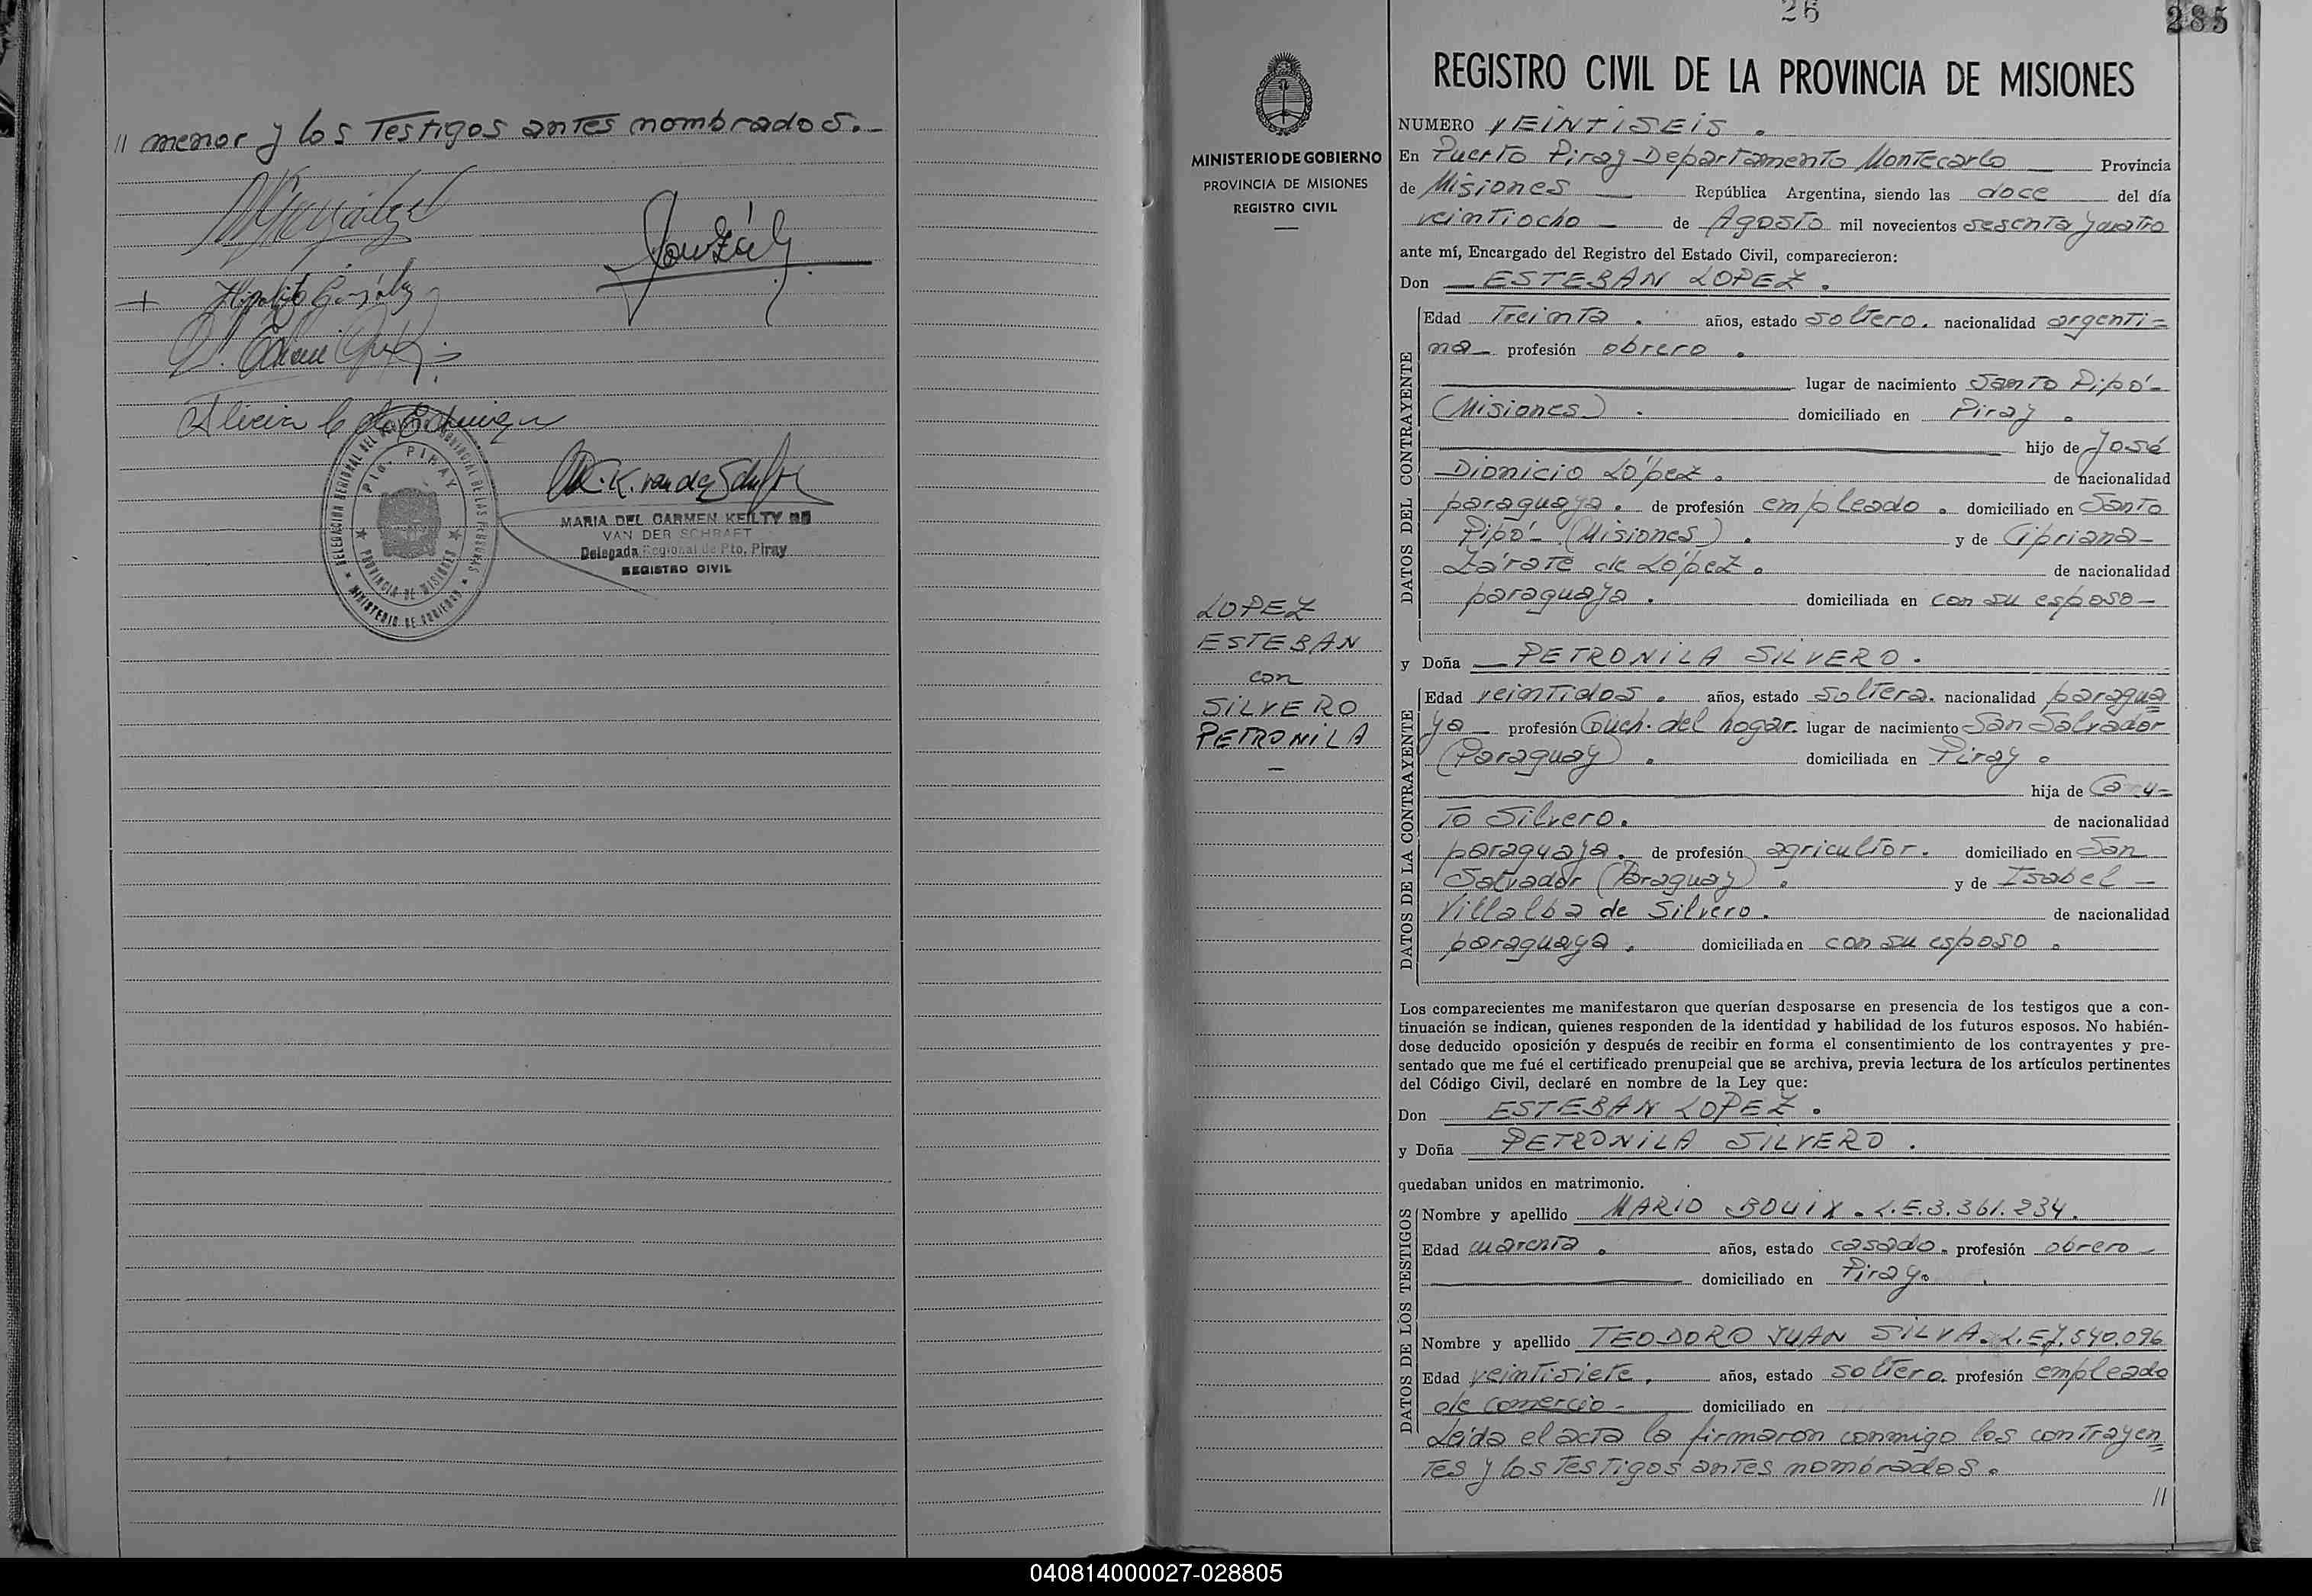 // menor y los Testigos antes nombrados.-
González
Hipolito González
Alicia C de
DELEGACION REGIONAL DEL REGISTRO PROVINCIAL DE LAS PERSONAS
Pto. PIRAY
PROVINCIA DE MISIONES
MINISTERIO DE GOBIERNO
M.K. van der Schraft
MARIA DEL CARMEN KEILTY DE
VAN DER SCHRAFT
Delegada Regional de Pto. Piray
REGISTRO CIVIL
26
285
MINISTERIO DE GOBIERNO
PROVINCIA DE MISIONES
REGISTRO CIVIL
LOPEZ
ESTEBAN
con
SILVERO
PETRONILA
REGISTRO CIVIL DE LA PROVINCIA DE MISIONES
NUMERO VEINTISEIS.
En Puerto Piray Departamento Montecarlo Provincia
de Misiones República Argentina, siendo las doce del día
veintiocho de Agosto mil novecientos sesenta y cuatro
ante mí, Encargado del Registro del Estado Civil, comparecieron:
Don ESTEBAN LOPEZ.
DATOS DEL CONTRAYENTE
Edad Treinta. años, estado soltero. nacionalidad argenti=
na profesión obrero.
lugar de nacimiento Santo Pipó-
(Misiones). domiciliado en Piray.
hijo de José
Dionicio López. de nacionalidad
paraguaya. de profesión empleado. domiciliado en Santo
Pipó- (Misiones). y de Cipriana-
Zárate de López. de nacionalidad
paraguaya. domiciliada en con su esposo-
y Doña PETRONILA SILVERO.
DATOS DE LA CONTRAYENTE
Edad veintidos. años, estado soltera. nacionalidad paragua=
ya profesión Queh. del hogar. lugar de nacimiento San Salvador
(Paraguay). domiciliada en Piray.
hija de
to Silvero. de nacionalidad
paraguaya. de profesión agricultor. domiciliado en San
Salvador (Paraguay). y de Isabel-
Villalba de Silvero. de nacionalidad
paraguaya. domiciliada en con su esposo.
Los comparecientes me manifestaron que querían desposarse en presencia de los testigos que a con-
tinuación se indican, quienes responden de la identidad y habilidad de los futuros esposos. No habién-
dose deducido oposición y después de recibir en forma el consentimiento de los contrayentes y pre-
sentado que me fué el certificado prenupcial que se archiva, previa lectura de los artículos pertinentes
del Código Civil, declaré en nombre de la Ley que:
Don ESTEBAN LOPEZ.
y Doña PETRONILA SILVERO.
quedaban unidos en matrimonio.
DATOS DE LOS TESTIGOS
Nombre y apellido MARIO BOUIX. L.E.3.361.234.
Edad cuarenta. años, estado casado. profesión obrero
domiciliado en Piray.
Nombre y apellido TEODORO JUAN SILVA. L.E.7.540.096
Edad veintisiete. años, estado soltero. profesión empleado
de comercio- domiciliado en
Leída el acta la firmaron conmigo los contrayen=
tes y los testigos antes nombrados.
//
040814000027-028805